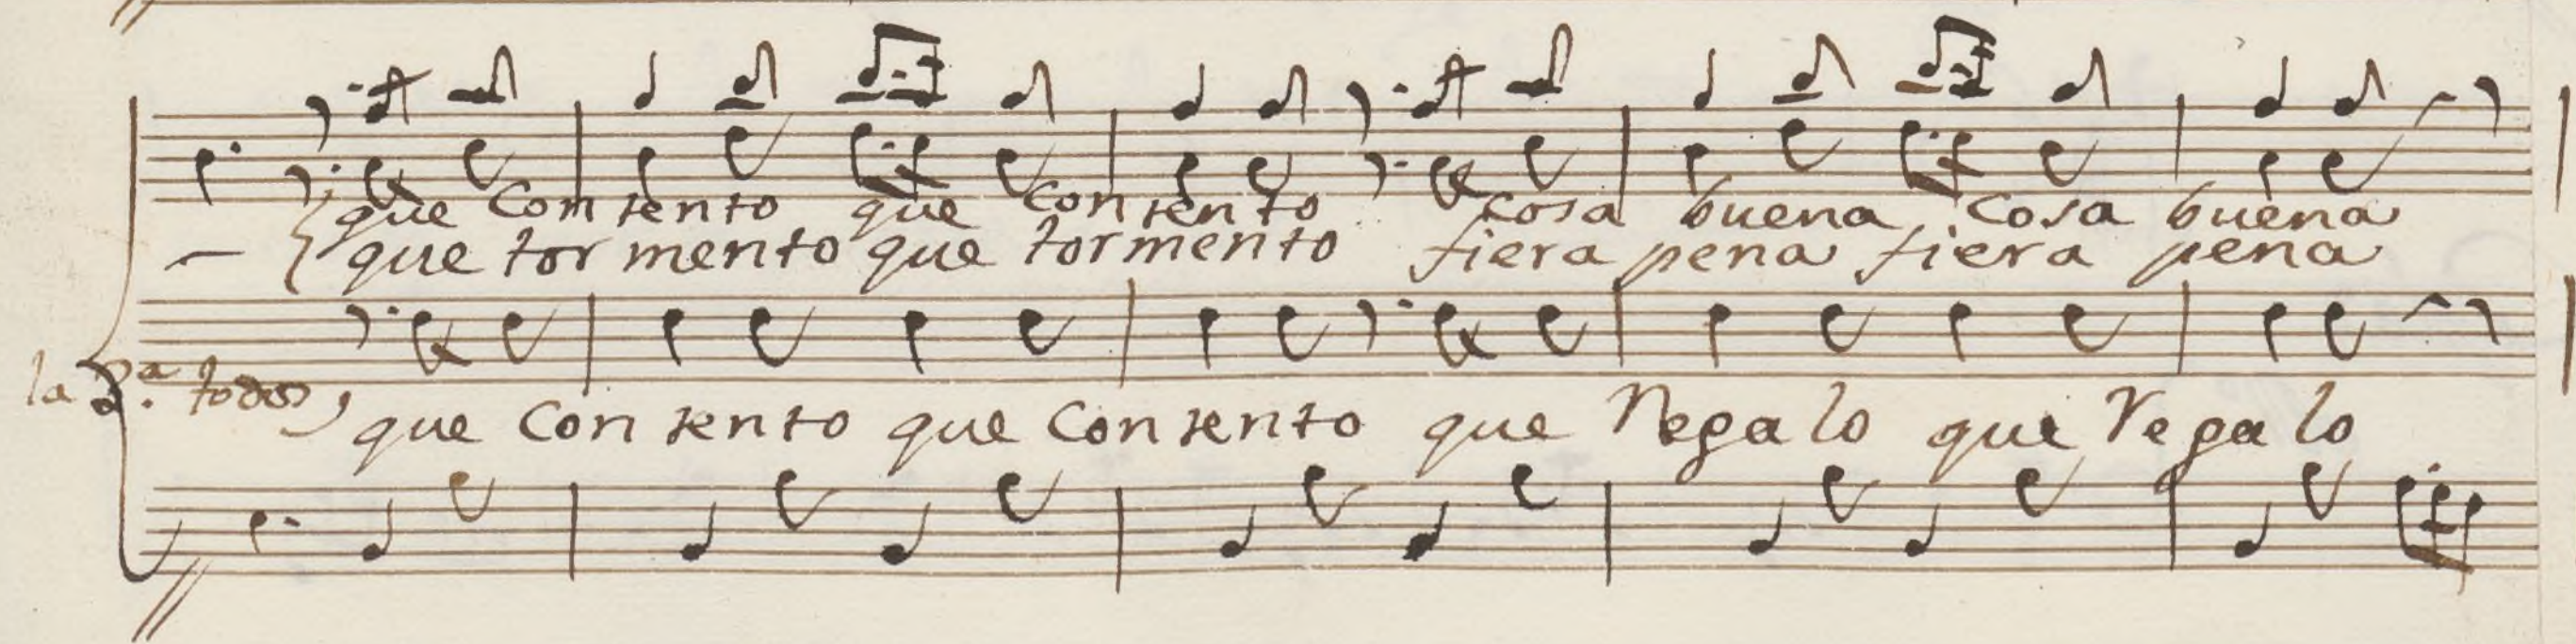 que Contento que Contento Cosa buena Cosa buena
que tormento que tormento fiera pena fiera pena
la 2.a todos,
que Contento que Contento que Regalo que Regalo